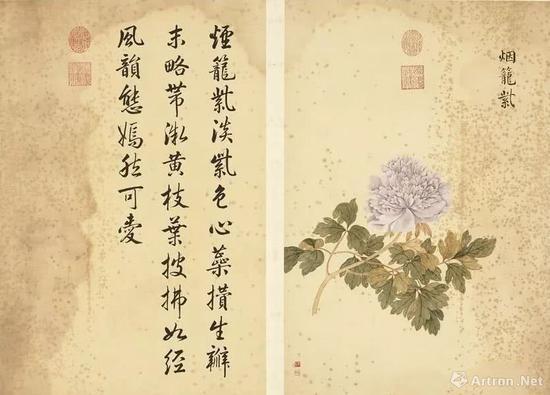 烟籠紫
煙籠紫淡紫色心蘂攢生瓣
末略帶微黄枝葉披拂如經
風韻態嫣然可愛
Artron.Net